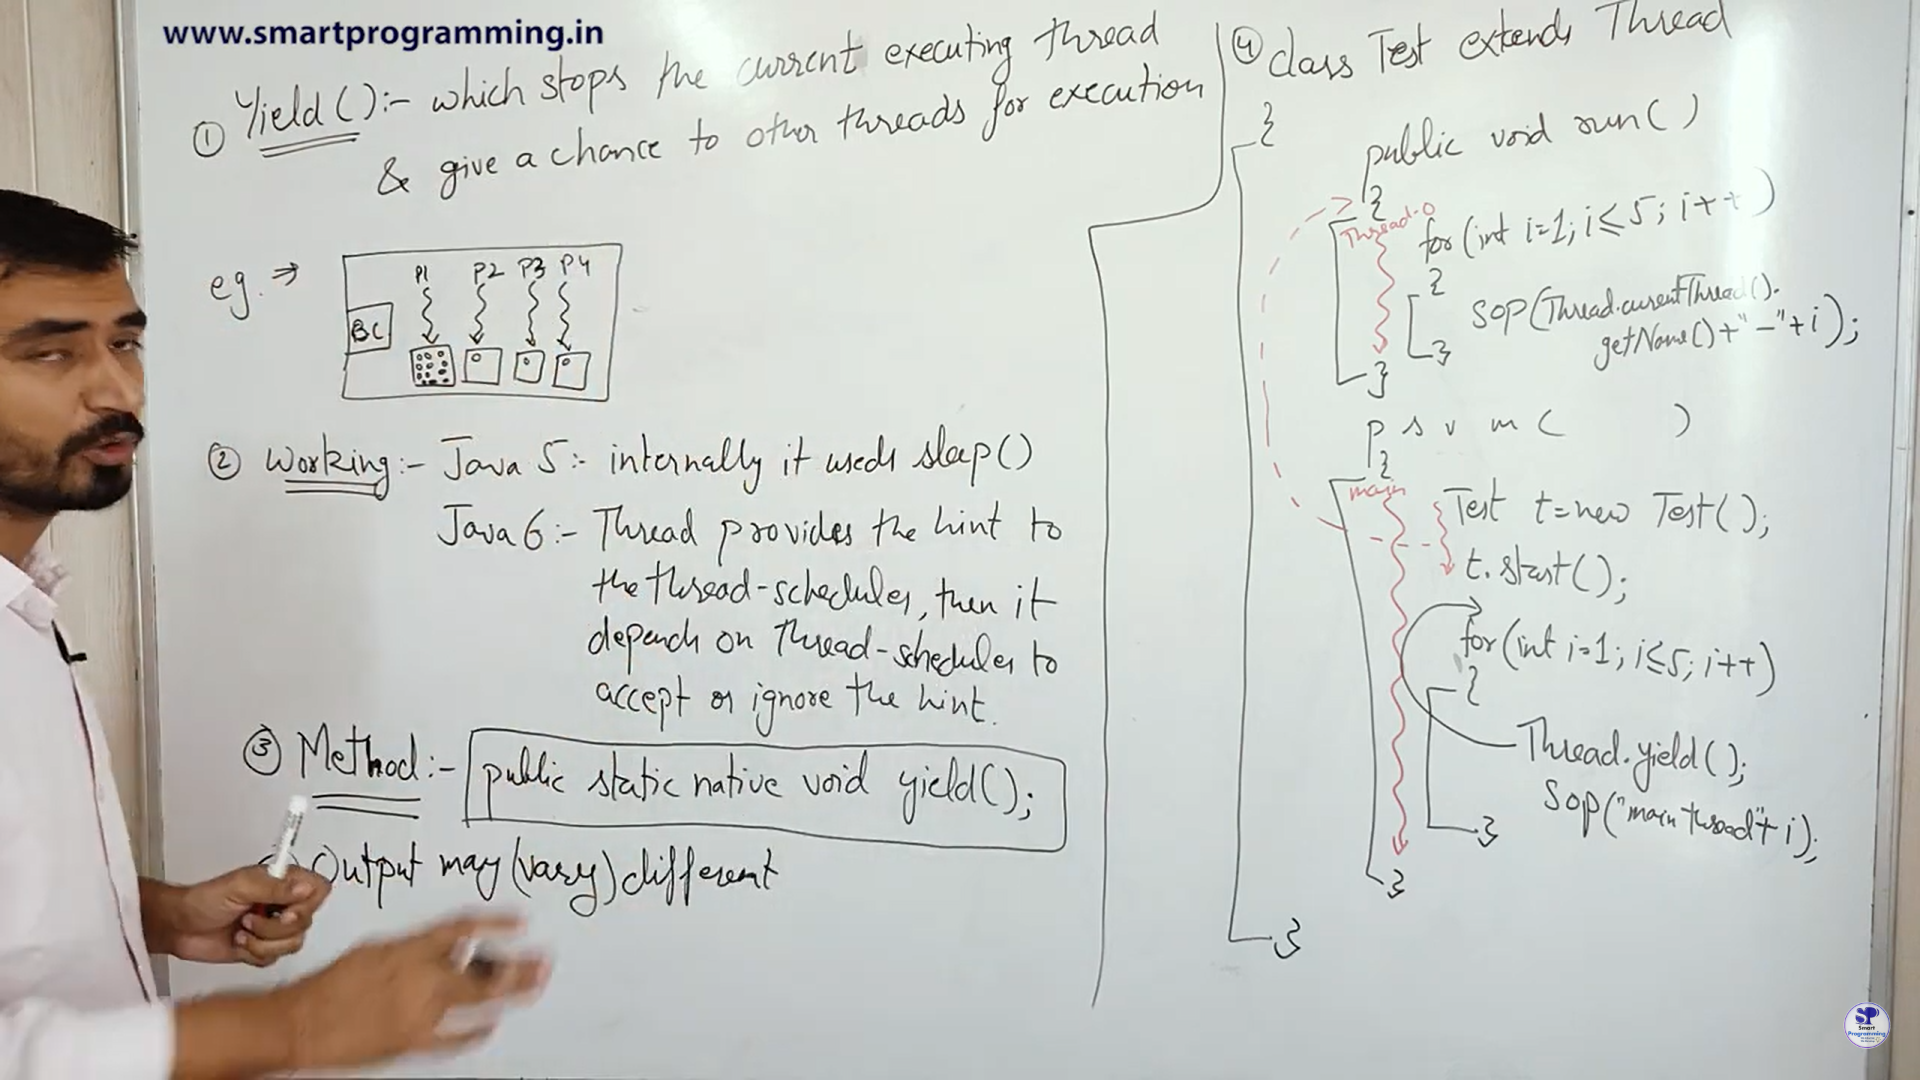 www.smartprogramming.in
① Yield() :- which stops the current executing thread
& give a chance to other threads for execution
eg. ⇒
P1 P2 P3 P4
BC
② Working :- Java 5 :- internally it used sleep()
Java 6 :- Thread provides the hint to
the thread-scheduler, then it
depends on Thread-scheduler to
accept or ignore the hint.
③ Method :- public static native void yield();
Output may (vary) different
④ class Test extends Thread
{
public void run()
{
Thread-0
for (int i=1; i≤5; i++)
{
SOP(Thread.curentThread().
getName()+"-"+i);
}
}
p s v m ( )
{
main
Test t=new Test();
t.start();
for (int i=1; i≤5; i++)
{
Thread.yield();
SOP("main thread"+i);
}
}
}
SP
Smart
Programming